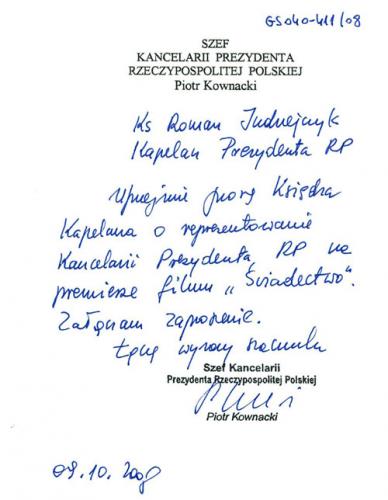 GS040-411/08
SZEF
KANCELARII PREZYDENTA
RZECZYPOSPOLITEJ POLSKIEJ
Piotr Kownacki
Ks Roman Indrzejczyk
Kapelan Prezydenta RP
Uprzejmie proszę Księdza
Kapelana o reprezentowanie
Kancelarii Prezydenta RP na
premierze filmu „Świadectwo".
Załączam zaproszenie.
Łączę wyrazy szacunku
Szef Kancelarii
Prezydenta Rzeczypospolitej Polskiej
Piotr Kownacki
09.10.2008